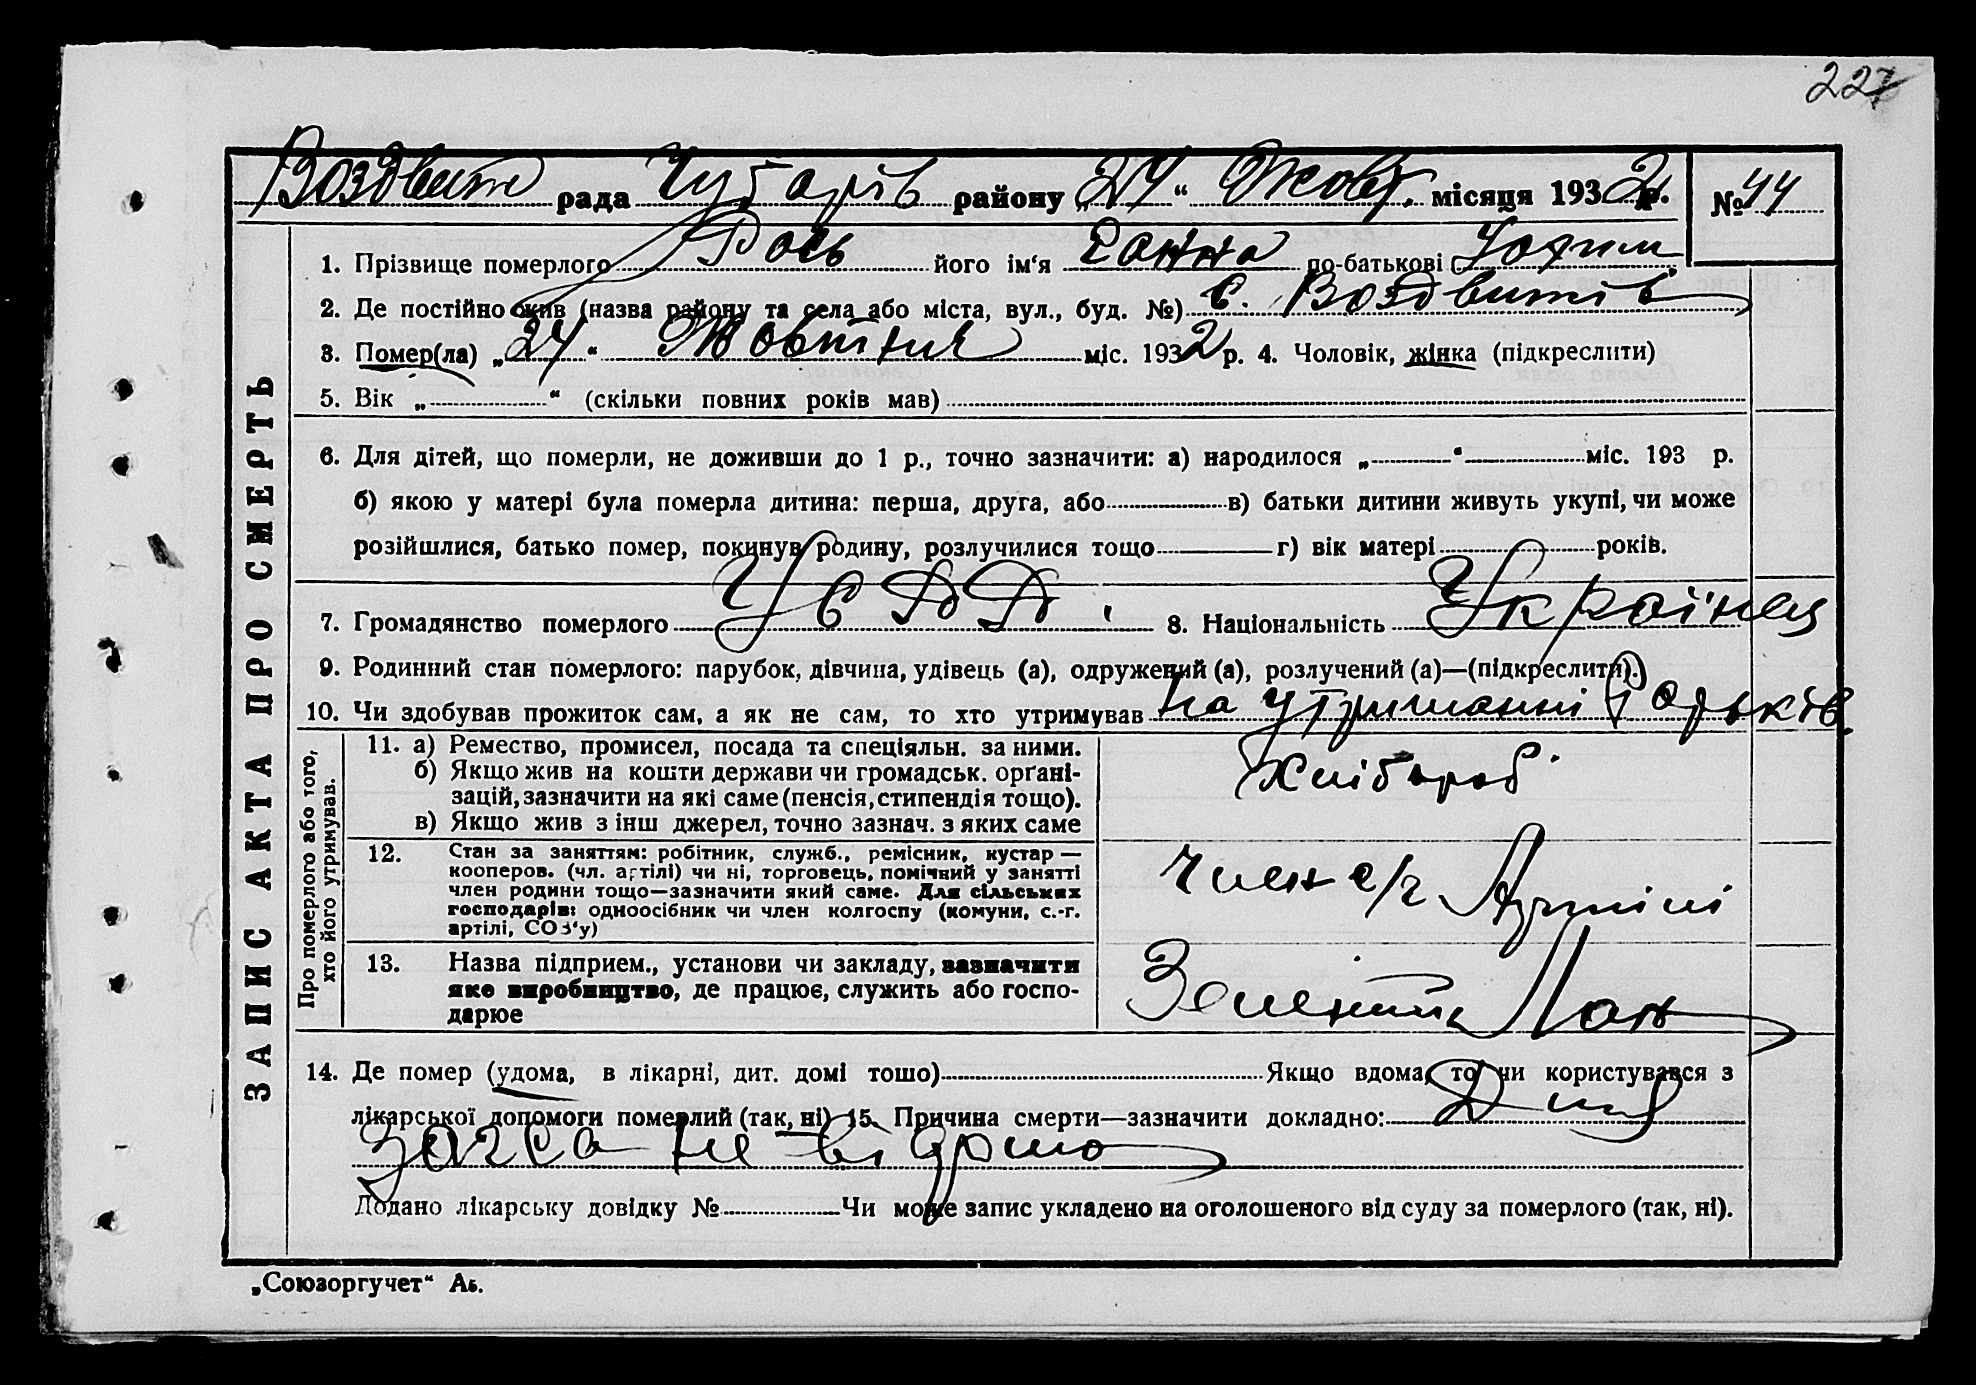 227
Воздвиж рада Чубарів району „24“ Жовт. місяця 1932 р. № 44
1. Прізвище померлого Рось його ім‘я Ганна по-батькові Юхим.
2. Де постійно жив (назва району та села або міста, вул., буд. №) с. Воздвижів
3. Помер(ла) „24“ Жовтня міс. 1932 р. 4. Чоловік, жінка (підкреслити)
5. Вік „ “ (скільки повних років мав)
6. Для дітей, що померли, не доживши до 1 р., точно зазначити: а) народилося „ “ міс. 193 р.
б) якою у матері була померла дитина: перша, друга, або в) батьки дитини живуть укупі, чи може
розійшлися, батько помер, покинув родину, розлучилися тощо г) вік матері років.
7. Громадянство померлого УСРР. 8. Національність Українец
9. Родинний стан померлого: парубок, дівчина, удівець (а), одружений (а), розлучений (а)—(підкреслити).
10. Чи здобував прожиток сам, а як не сам, то хто утримував На утриманні батьків.
ЗАПИС АКТА ПРО СМЕРТЬ
Про померлого або того,
хто його утримував.
11. а) Ремество, промисел, посада та спеціяльн. за ними.
б) Якщо жив на кошти держави чи громадськ. орґані-
зацій, зазначити на які саме (пенсія, стипендія тощо).
в) Якщо жив з інш джерел, точно зазнач. з яких саме
Хлібороб
12. Стан за заняттям: робітник, служб., ремісник, кустар—
кооперов. (чл. артілі) чи ні, торговець, помічний у занятті
член родини тощо—зазначити який саме. Для сільських
господарів: одноосібник чи член колгоспу (комуни, с.-г.
артілі, СОЗ‘у)
Член с/г Артілі
13. Назва підприєм., установи чи закладу, зазначити
яке виробництво, де працює, служить або госпо-
дарює
Зелений Лан
14. Де помер (удома, в лікарні, дит. домі тощо) Якщо вдома, то чи користувався з
лікарської допомоги померлий (так, ні) 15. Причина смерти—зазначити докладно: Для
загса не відомо
Додано лікарську довідку № Чи може запис укладено на оголошеного від суду за померлого (так, ні).
„Союзоргучет“ Аь.